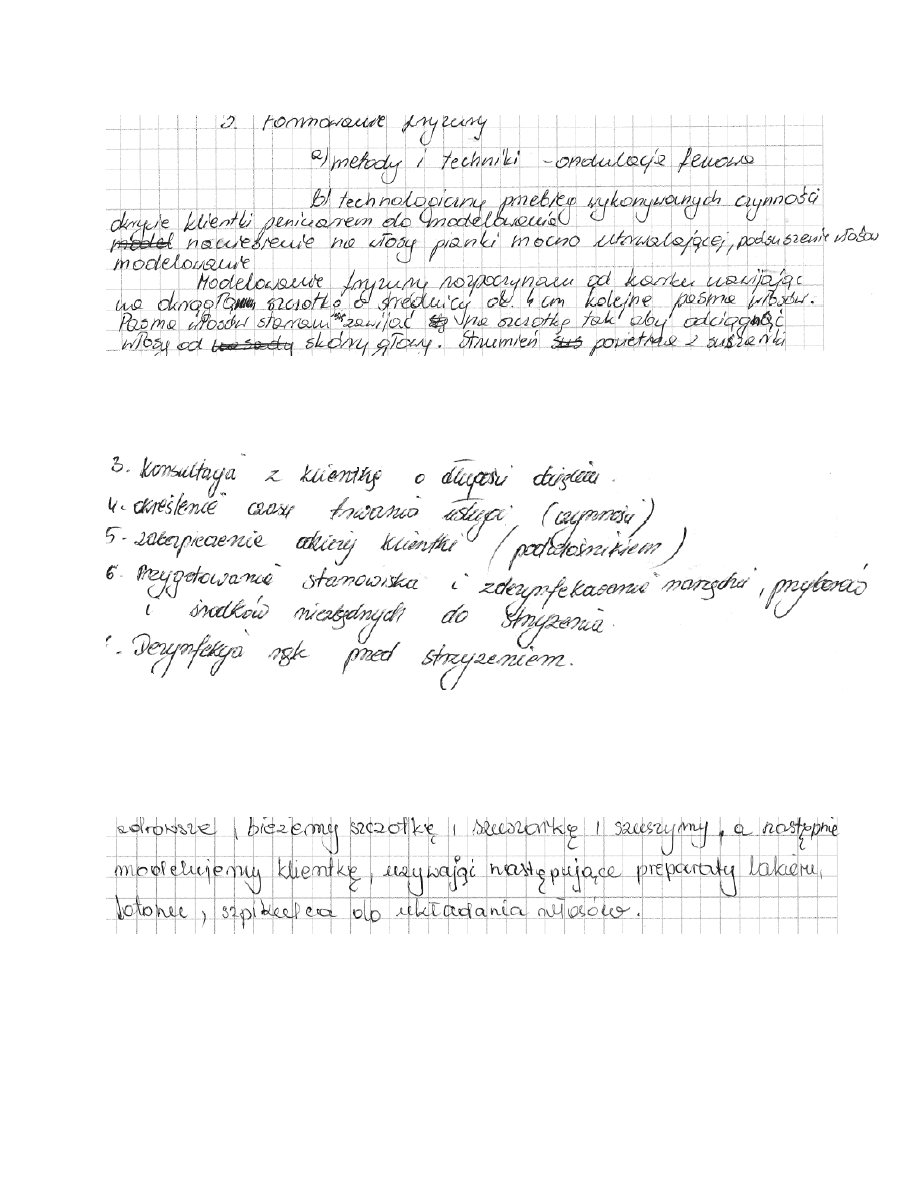 3. Formowanie fryzury
a) metody i techniki - ondulacja fenowa
b) technologiczny przebieg wykonywanych czynności
okrycie klientki peniuarem do modelowania
model naniesienie na włosy pianki mocno utrwalającej, podsuszenie włosów
modelowanie
Modelowanie fryzury rozpoczynam od karku nawijając
na okrągłą szczotkę o średnicy ok. 4 cm kolejne pasma włosów.
Pasma włosów staram się zawijać na szczotkę tak aby odciągnąć
włosy od skóry głowy. Strumień powietrza z suszarki
3. Konsultacja z klientką o długości cięcia.
4. określenie czasu trwania usługi (czynności)
5. zabezpieczenie odzieży klientki (podkołośnikiem)
6. Przygotowanie stanowiska i zdezynfekowanie narzędzi, przyborów
i środków niezbędnych do strzyżenia.
. Dezynfekcja rąk przed strzyżeniem.
zdrowsze, bieżemy szczotkę i szuszarkę i szuszymy, a następnie
modelujemy klientkę, używając następujące preparaty lakieru,
lotonec, szpikulca do układania włosów.